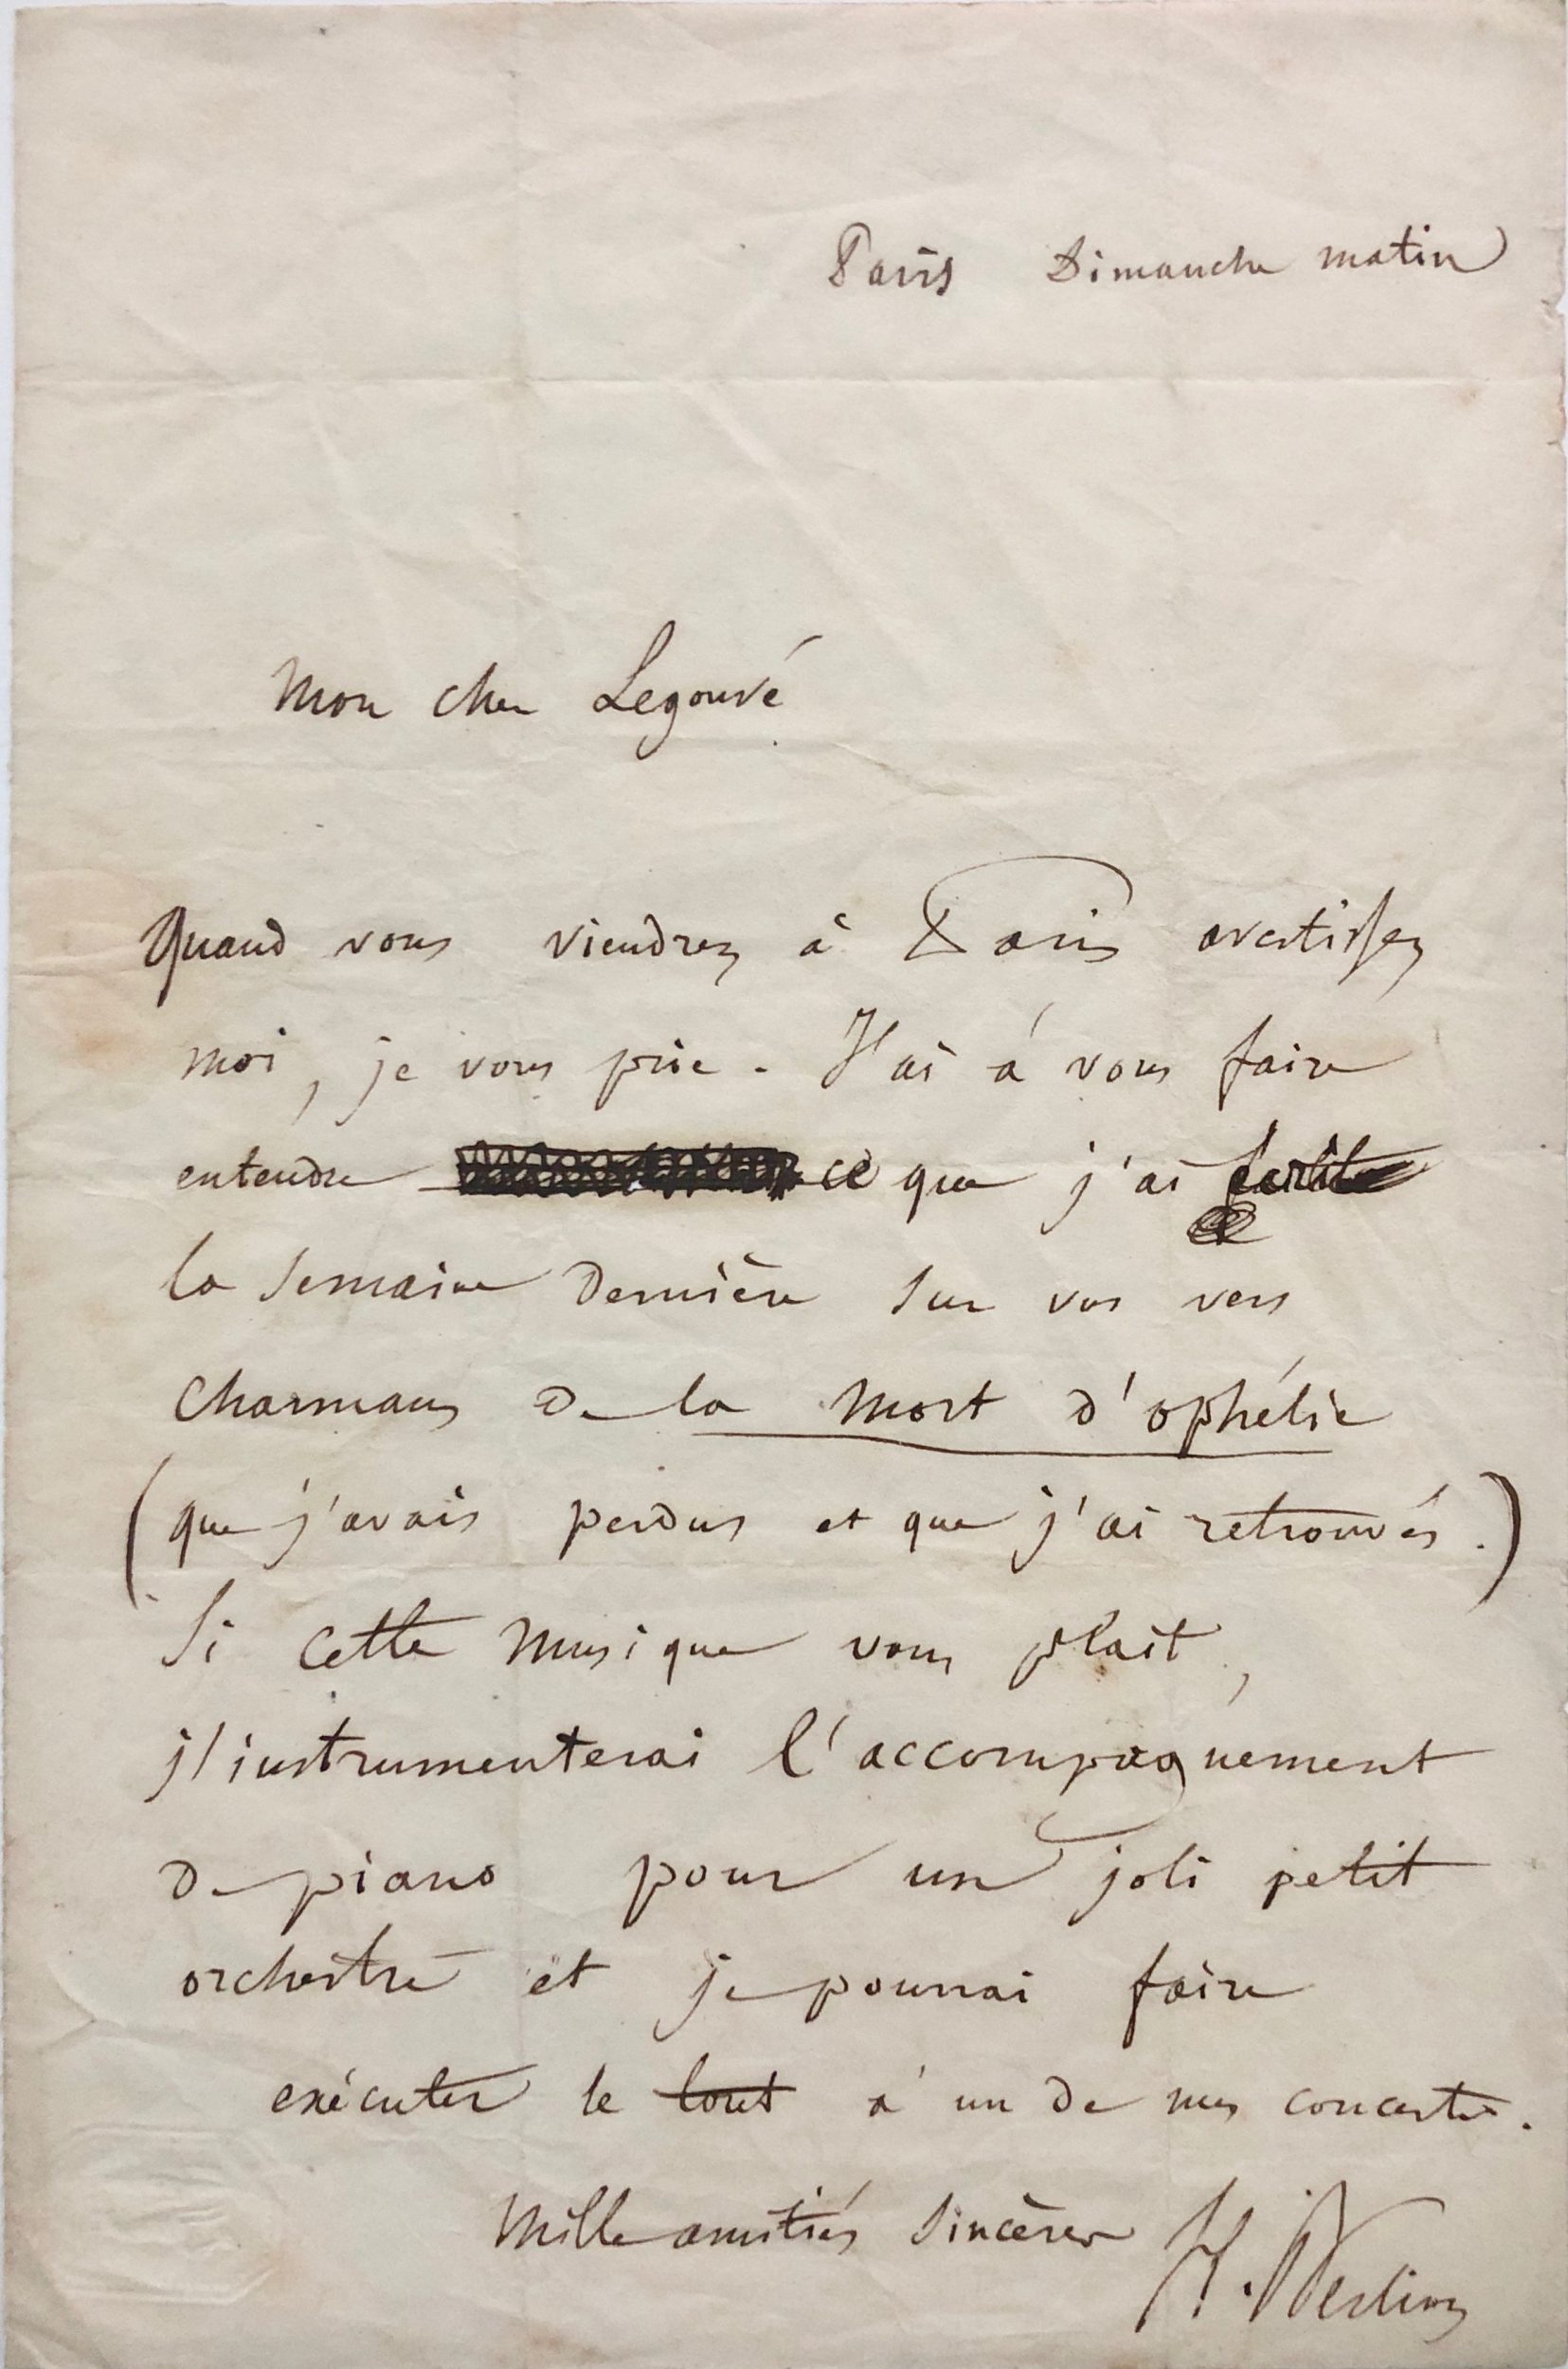 Paris Dimanche matin
Mon cher Legouvé
Quand vous viendrez à Paris avertissez
moi, je vous prie. J'ai à vous faire
entendre ce que j'ai écrit
la semaine dernière sur vos vers
charmans de la mort d'ophélie
(que j'avais perdus et que j'ai retrouvés.)
Si cette musique vous plait,
j'instrumenterai l'accompagnement
de piano pour un joli petit
orchestre et je pourrai faire
exécuter le tout à un de mes concerts.
Mille amitiés sincères H. Berlioz